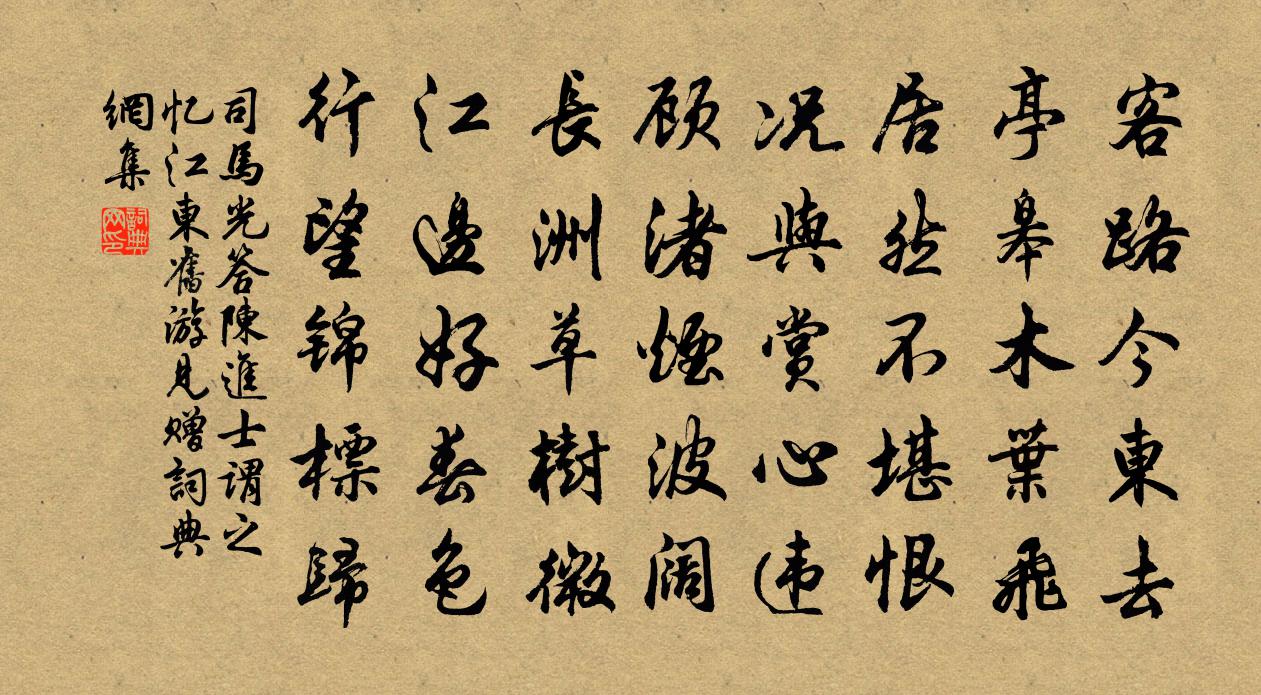 客路今東去
亭皋木葉飛
居然不堪恨
况與賞心违
顾渚煙波阔
長洲草樹微
江邊好春色
行望錦標歸
司馬光答陳進士谓之
忆江東舊游見赠詞典
網集
詞典
网印